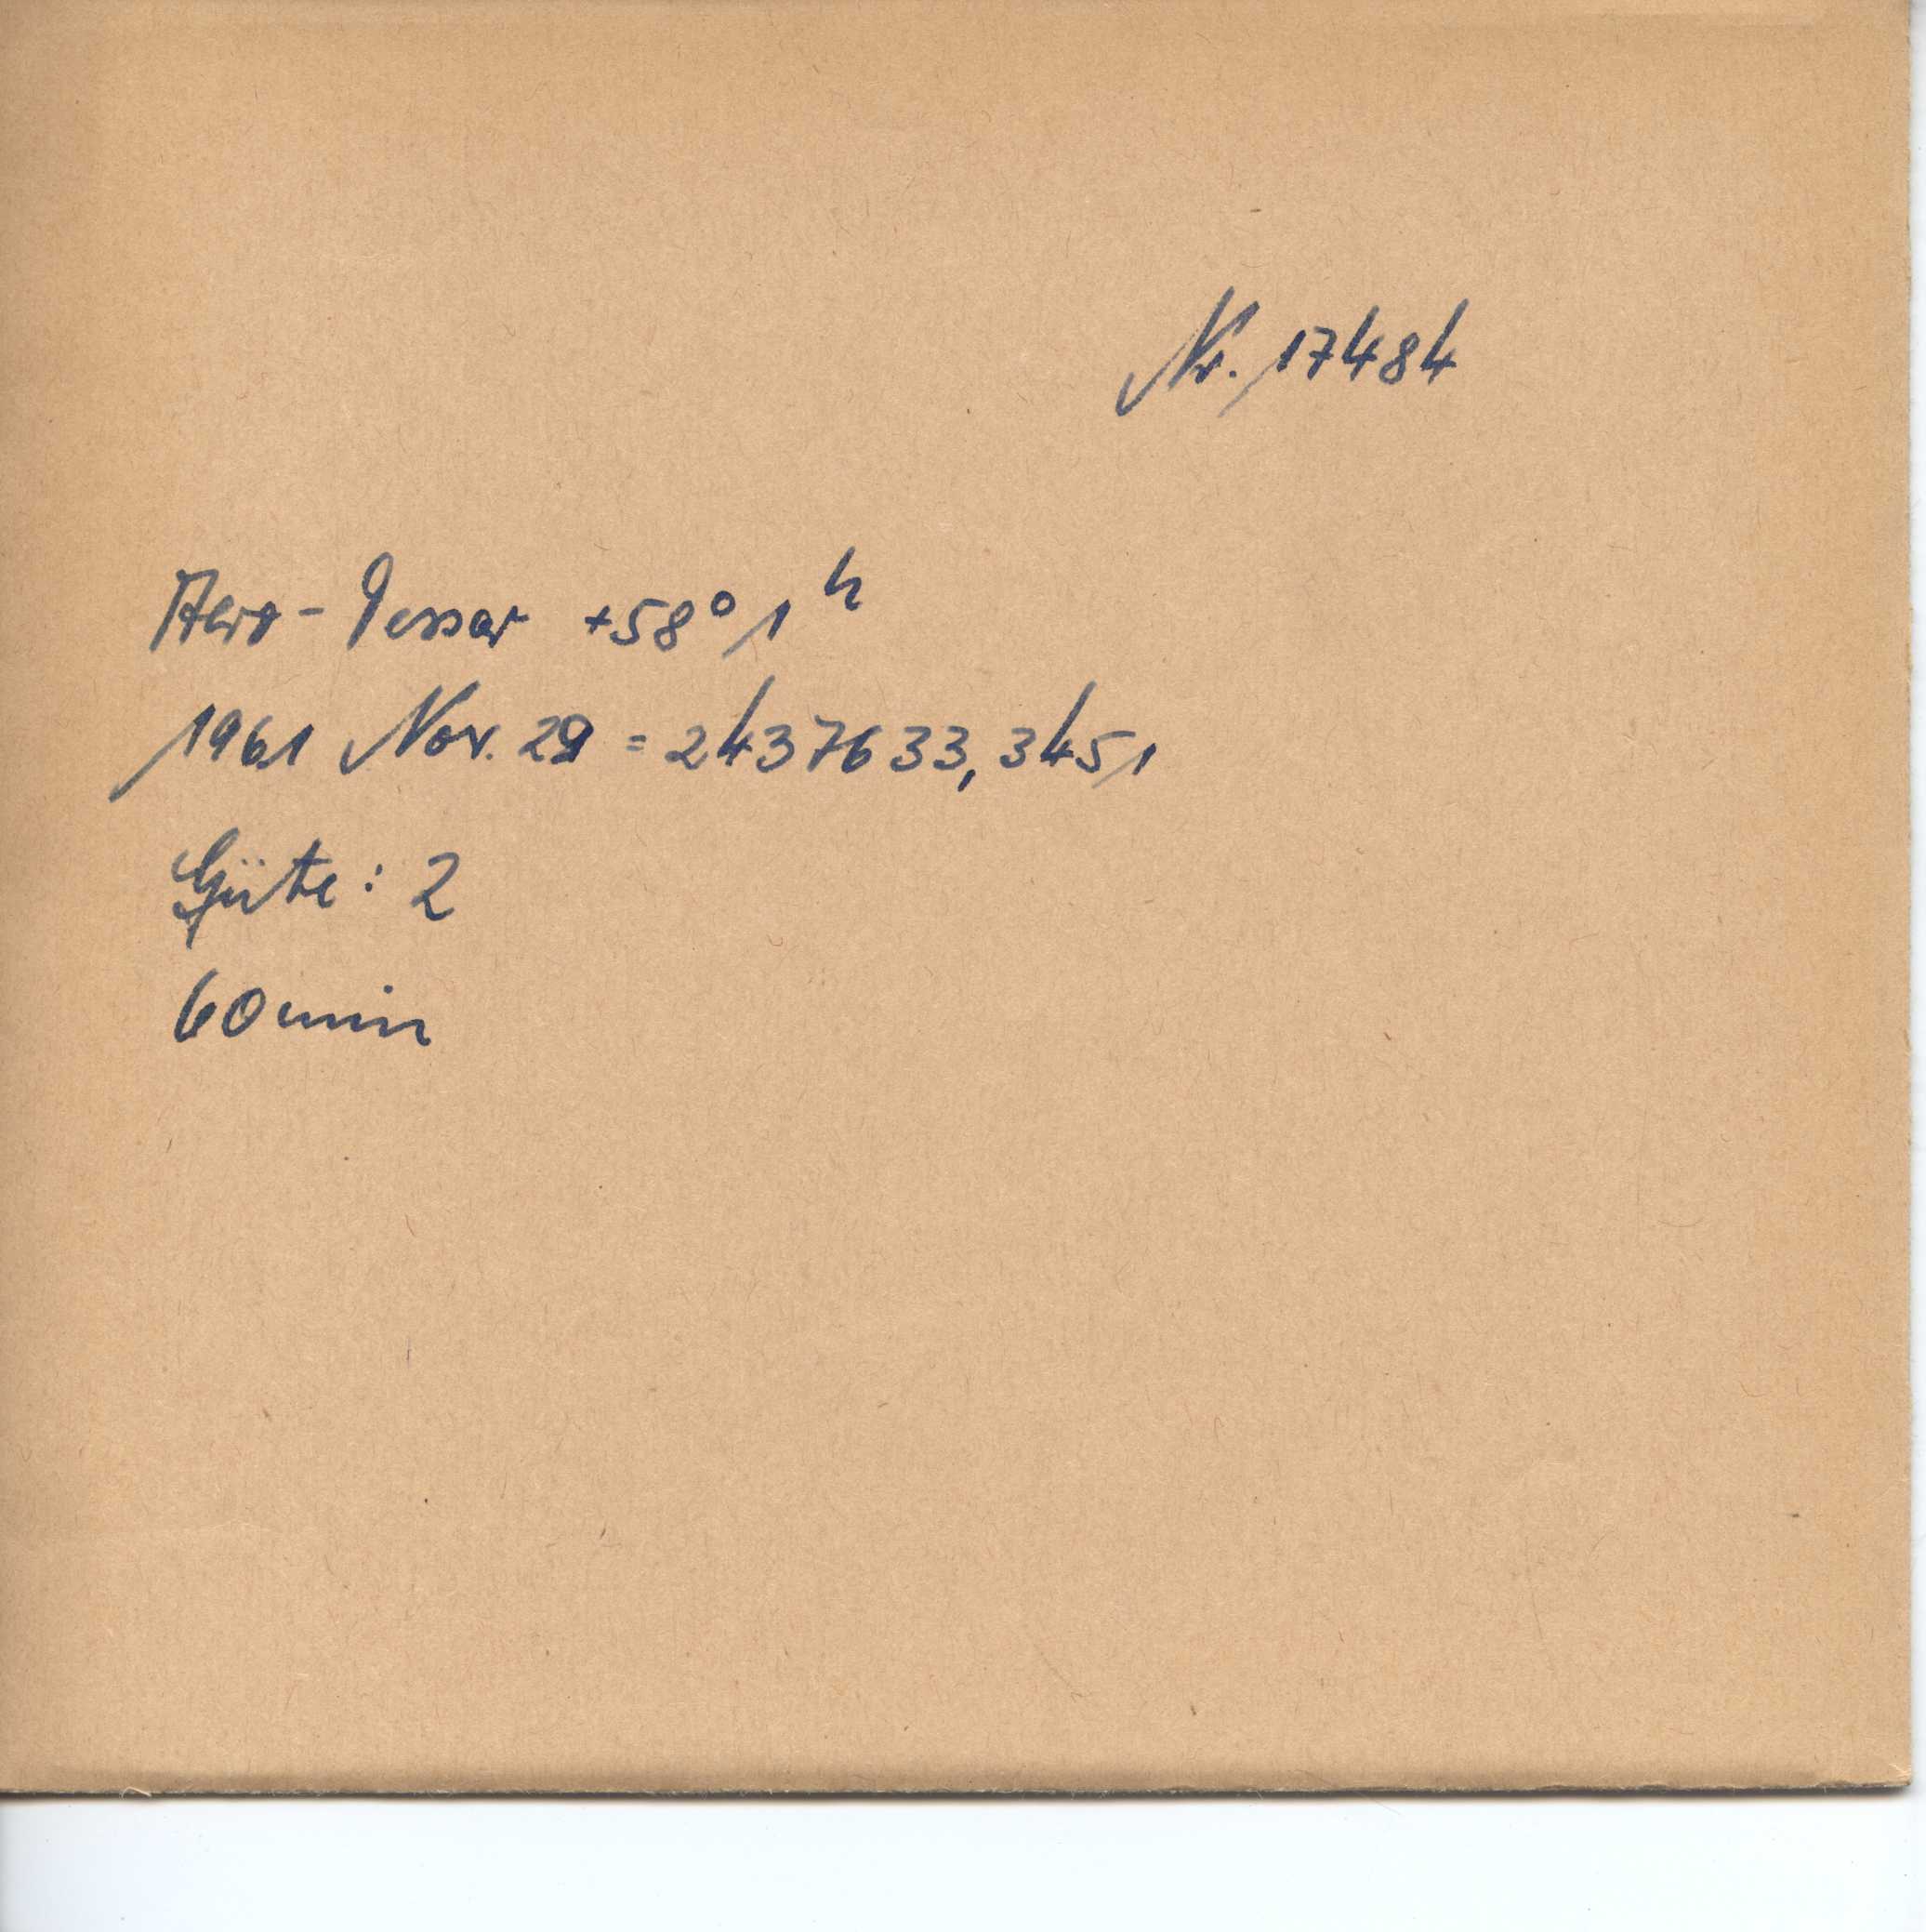 Nr. 17484
Aero-Tessar +58° 1ʰ
1961 Nov. 29 = 2437633,3451
Güte: 2
60 min